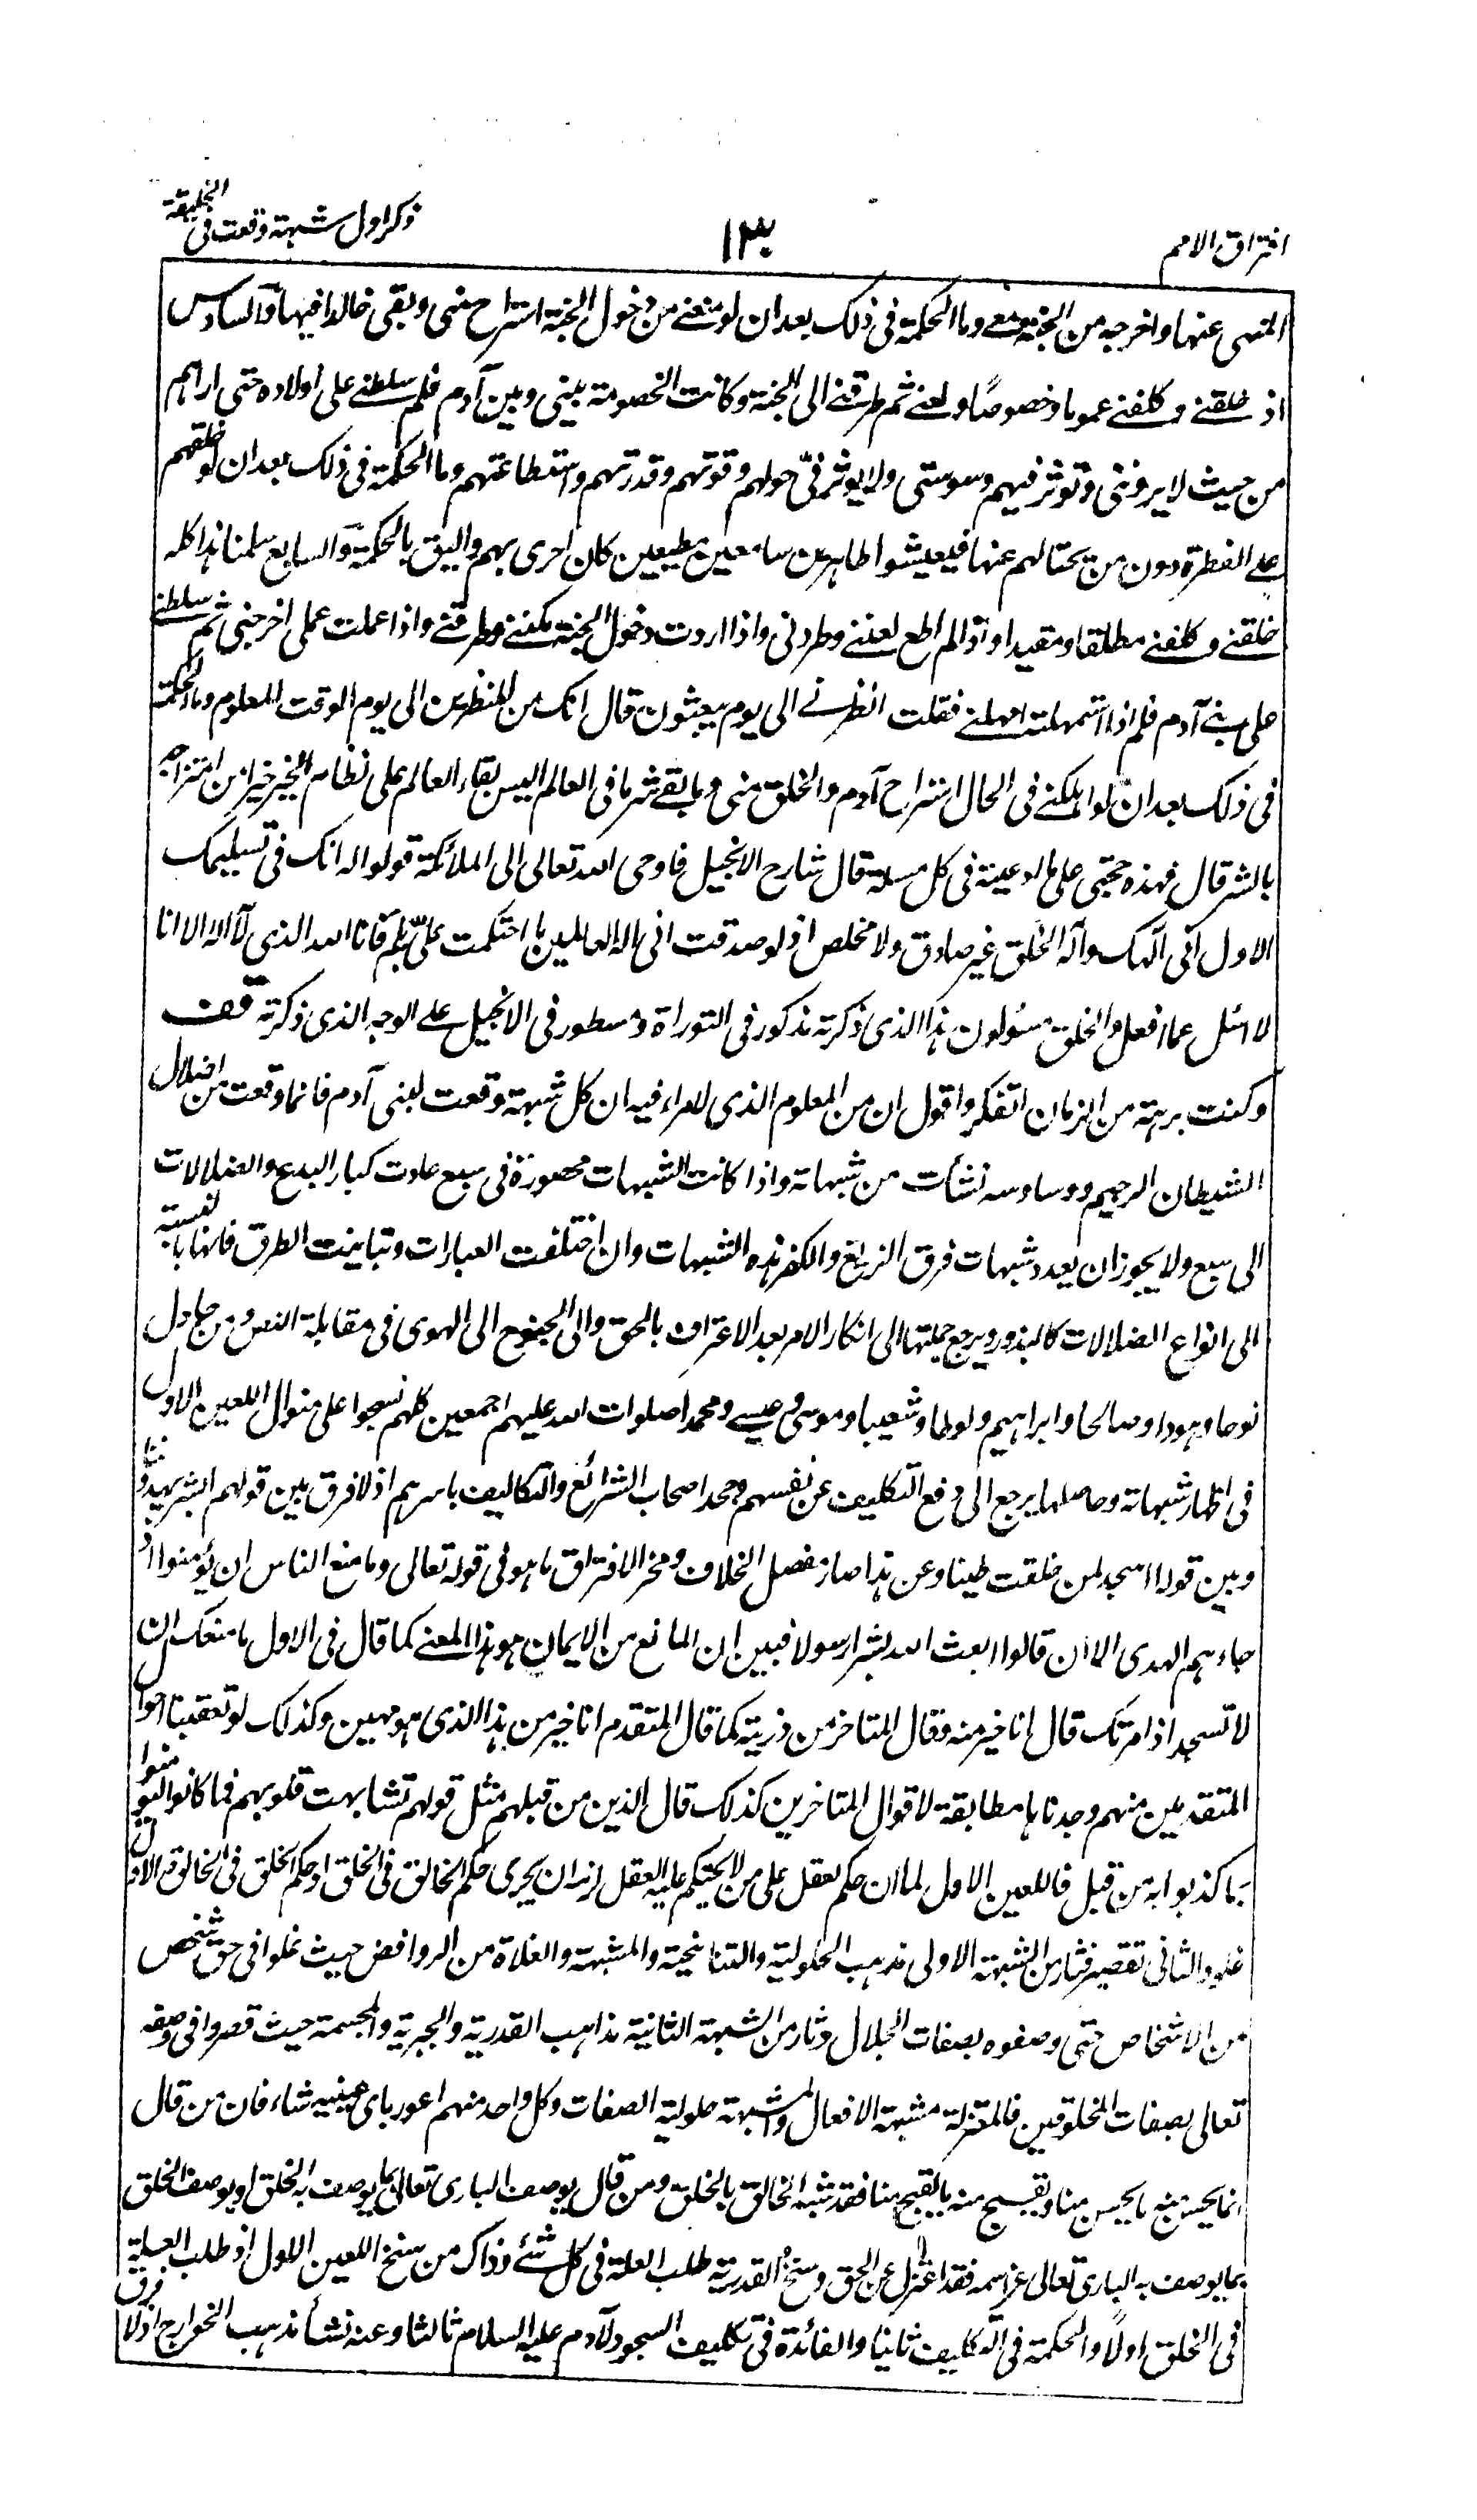 افتراق الامم
١٣
ذكر اول شبهة وقعت فى الخليقة
المنهى عنها واخرجه من الجنة معى وما الحكمة فى ذلك بعد ان لو منعنى من دخول الجنة استراح منى وبقى خالدا فيها والسادس
اذ خلقنى وكلفنى عموما وخصوصًا ولعننى ثم طرقنى الى الجنة وكانت الخصومة بينى وبين آدم فلم سلطنى على اولاده حتى اراهم
من حيث لا يروننى وتوثر فيهم وسوستى ولا يوثر فىّ حولهم وقوتهم وقدرتهم واستطاعتهم وما الحكمة فى ذلك بعد ان لو خلقهم
على الفطرة دون من يحتالهم عنها فيعيشوا طاهرين سامعين مطيعين كان احرى بهم واليق بالحكمة والسابع سلمنا هذا كله
خلقنى وكلفنى مطلقا ومقيدا واذا لم اطع لعننى وطردنى واذا اردت دخول الجنة مكننى وطرقنى واذا عملت عملى اخرجنى ثم سلطنى
على بنى آدم فلم اذا استمهلته امهلنى فقلت انظرنى الى يوم يبعثون قال انك من المنظرين الى يوم الوقت المعلوم وما الحكمة
فى ذلك بعد ان لو اهلكنى فى الحال استراح آدم والخلق منى وما بقى شر ما فى العالم اليس بقاء العالم على نظام الخير خيرا من امتزاجه
بالشر قال فهذه حجتى على ما ادعيته فى كل مسلة قال شارح الانجيل فاوحى الله تعالى الى الملائكة قولوا له انك فى تسليمك
الاول انى الهك واله الخلق غير صادق ولا مخلص اذ لو صدقت انى اله العالمين ما احتكمت علىّ بلم فانا الله الذى لا اله الا انا
لا اسئل عما افعل والخلق مسئولون هذا الذى ذكرته مذكور فى التوراة ومسطور فى الانجيل على الوجه الذى ذكرته قف
وكنت برهة من الزمان اتفكر واقول ان من المعلوم الذى لا مراء فيه ان كل شبهة وقعت لبنى آدم فانما وقعت من اضلال
الشيطان الرجيم ووساوسه نشأت من شبهاته واذا كانت الشبهات محصورة فى سبع عادت كبار البدع والضلالات
الى سبع ولا يجوز ان يعدد شبهات فرق الزيغ والكفر هذه الشبهات وان اختلفت العبارات وتباينت الطرق فانها بالنسبة
الى انواع الضلالات كالبذور ويرجع جملتها الى انكار الامر بعد الاعتراف بالحق والى الجنوح الى الهوى فى مقابلة النص ومن جادل
نوحا وهودا وصالحا وابراهيم ولوطا وشعيبا وموسى وعيسى ومحمدا صلوات الله عليهم اجمعين كلهم نسجوا على منوال اللعين الاول
فى اظهار شبهاته وحاصلها يرجع الى دفع التكليف عن نفسهم وجحد اصحاب الشرائع والتكاليف باسرهم اذ لا فرق بين قولهم ابشر يهدوننا
وبين قوله ااسجد لمن خلقت طينا وعن هذا صار مفصل الخلاف ومحز الافتراق ما هو فى قوله تعالى وما منع الناس ان يؤمنوا اذ
جاءهم الهدى الا ان قالوا ابعث الله بشرا رسولا فبين ان المانع من الايمان هو هذا المعنى كما قال فى الاول ما منعك ان
لا تسجد اذ امرتك قال انا خير منه وقال المتاخر من ذريته كما قال المتقدم انا خير من هذا الذى هو مهين وكذلك لو تعقبنا احوال
المتقدمين منهم وجدناها مطابقة لاقوال المتاخرين كذلك قال الذين من قبلهم مثل قولهم تشابهت قلوبهم فما كانوا ليؤمنوا
بما كذبوا به من قبل فاللعين الاول لما ان حكم لعقل على من لا يحتكم عليه العقل لزمه ان يجرى حكم الخالق فى الخلق او حكم الخلق فى الخالق والاول
غلو والثانى تقصير فثار من الشبهة الاولى مذهب الحلولية والتناسخية والمشبهة والغلاة من الروافض حيث غلوا فى حق شخص
من الاشخاص حتى وصفوه بصفات الجلال وثار من الشبهة الثانية مذاهب القدرية والجبرية والمجسمة حيث قصروا فى وصفه
تعالى بصفات المخلوقين فالمعتزلة مشبهة الافعال والمشبهة حلولية الصفات وكل واحد منهم اعور باى عينيه شاء فان من قال
انما يحسن منه ما يحسن منا ويقبح منه ما يقبح منا فقد شبه الخالق بالخلق ومن قال يوصف البارى تعالى بما يوصف به الخلق او يوصف الخلق
بما يوصف به البارى تعالى عز اسمه فقد اعتزل عن الحق وسنخ القدرية طلب العلة فى كل شئ وذاك من سنخ اللعين الاول اذ طلب العلة
فى الخلق اولًا والحكمة فى التكليف ثانيا والفائدة فى تكليف السجود لآدم عليه السلام ثالثا وعنه نشأ مذهب الخوارج اذ لا فرق